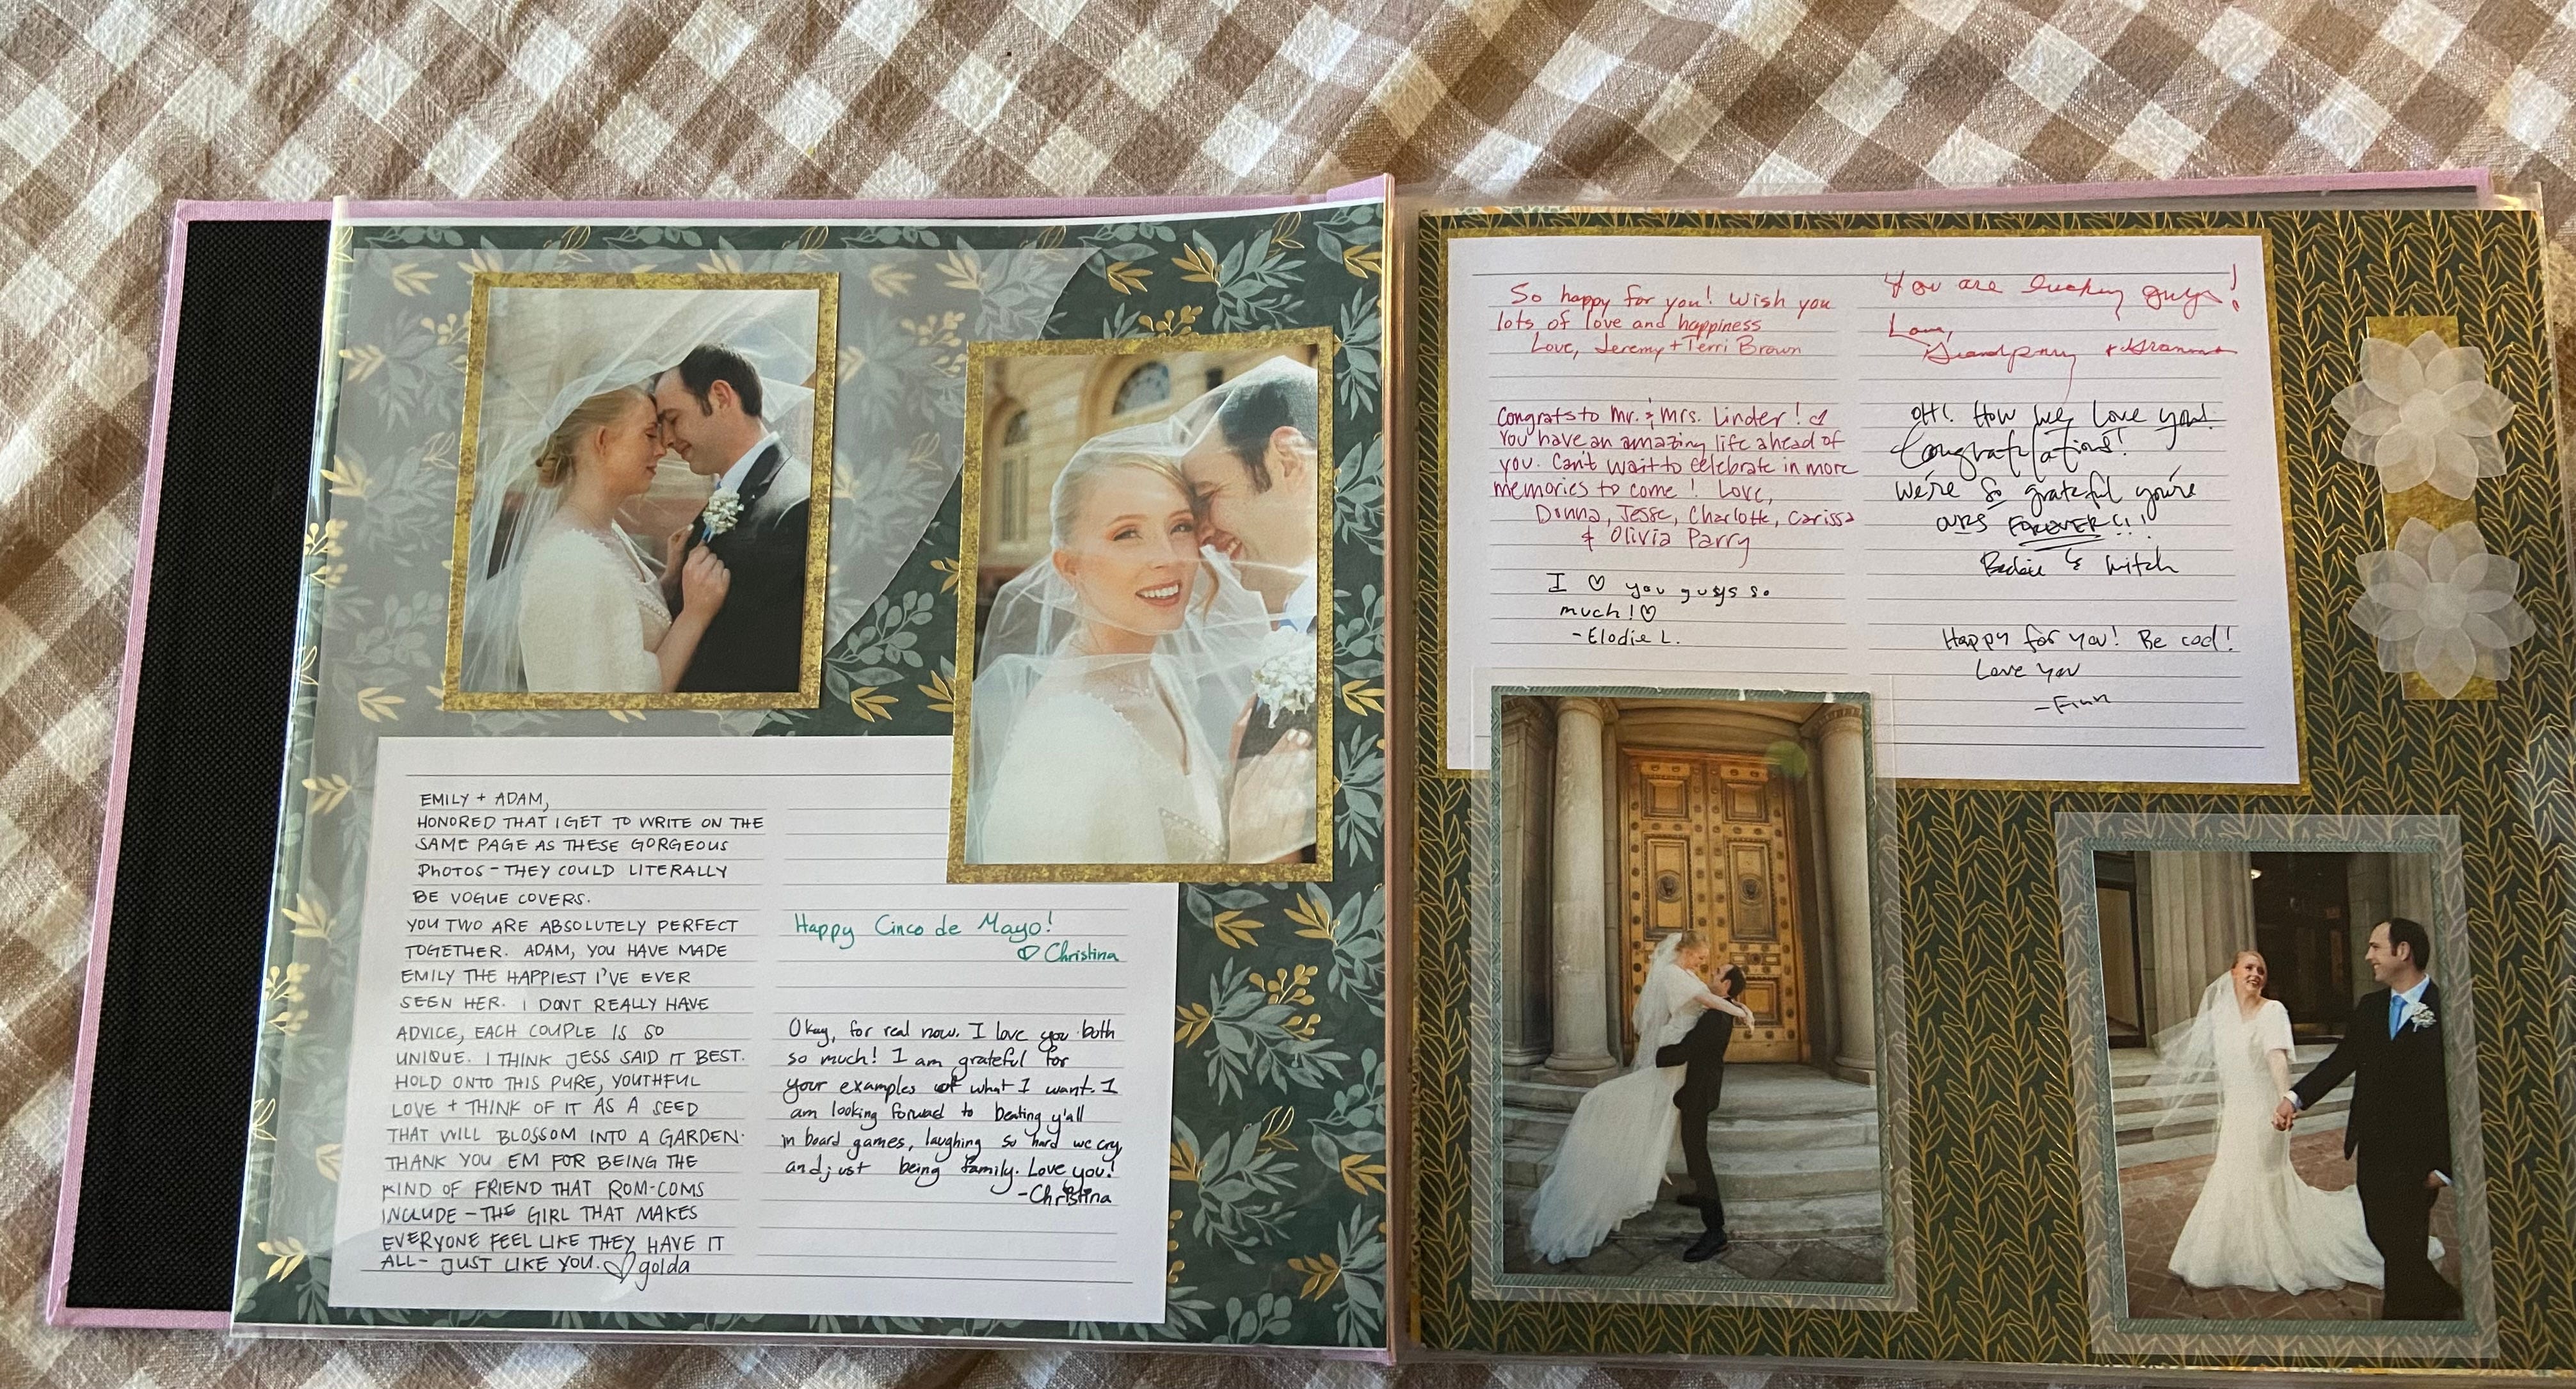 EMILY + ADAM,
HONORED THAT I GET TO WRITE ON THE
SAME PAGE AS THESE GORGEOUS
PHOTOS - THEY COULD LITERALLY
BE VOGUE COVERS.
YOU TWO ARE ABSOLUTELY PERFECT
TOGETHER. ADAM, YOU HAVE MADE
EMILY THE HAPPIEST I'VE EVER
SEEN HER. I DONT REALLY HAVE
ADVICE, EACH COUPLE IS SO
UNIQUE. I THINK JESS SAID IT BEST.
HOLD ONTO THIS PURE, YOUTHFUL
LOVE + THINK OF IT AS A SEED
THAT WILL BLOSSOM INTO A GARDEN.
THANK YOU EM FOR BEING THE
KIND OF FRIEND THAT ROM-COMS
INCLUDE - THE GIRL THAT MAKES
EVERYONE FEEL LIKE THEY HAVE IT
ALL - JUST LIKE YOU. ♡ golda
Happy Cinco de Mayo!
♡ Christina
Okay, for real now. I love you both
so much! I am grateful for
your examples of what I want. I
am looking forward to beating y'all
in board games, laughing so hard we cry,
and just being family. Love you!
-Christina
So happy for you! Wish you
lots of love and happiness
Love, Jeremy + Terri Brown
Congrats to Mr. & Mrs. Linder! ♡
You have an amazing life ahead of
you. Can't wait to celebrate in more
memories to come! Love,
Donna, Jesse, Charlotte, Carissa
& Olivia Parry
I ♡ you guys so
much! ♡
-Elodie L.
You are lucky guys!
Love,
OH! How we love you!
Congratulations!
We're so grateful you're
OURS FOREVER!!!
& Mitch
Happy for you! Be cool!
Love you
-Finn